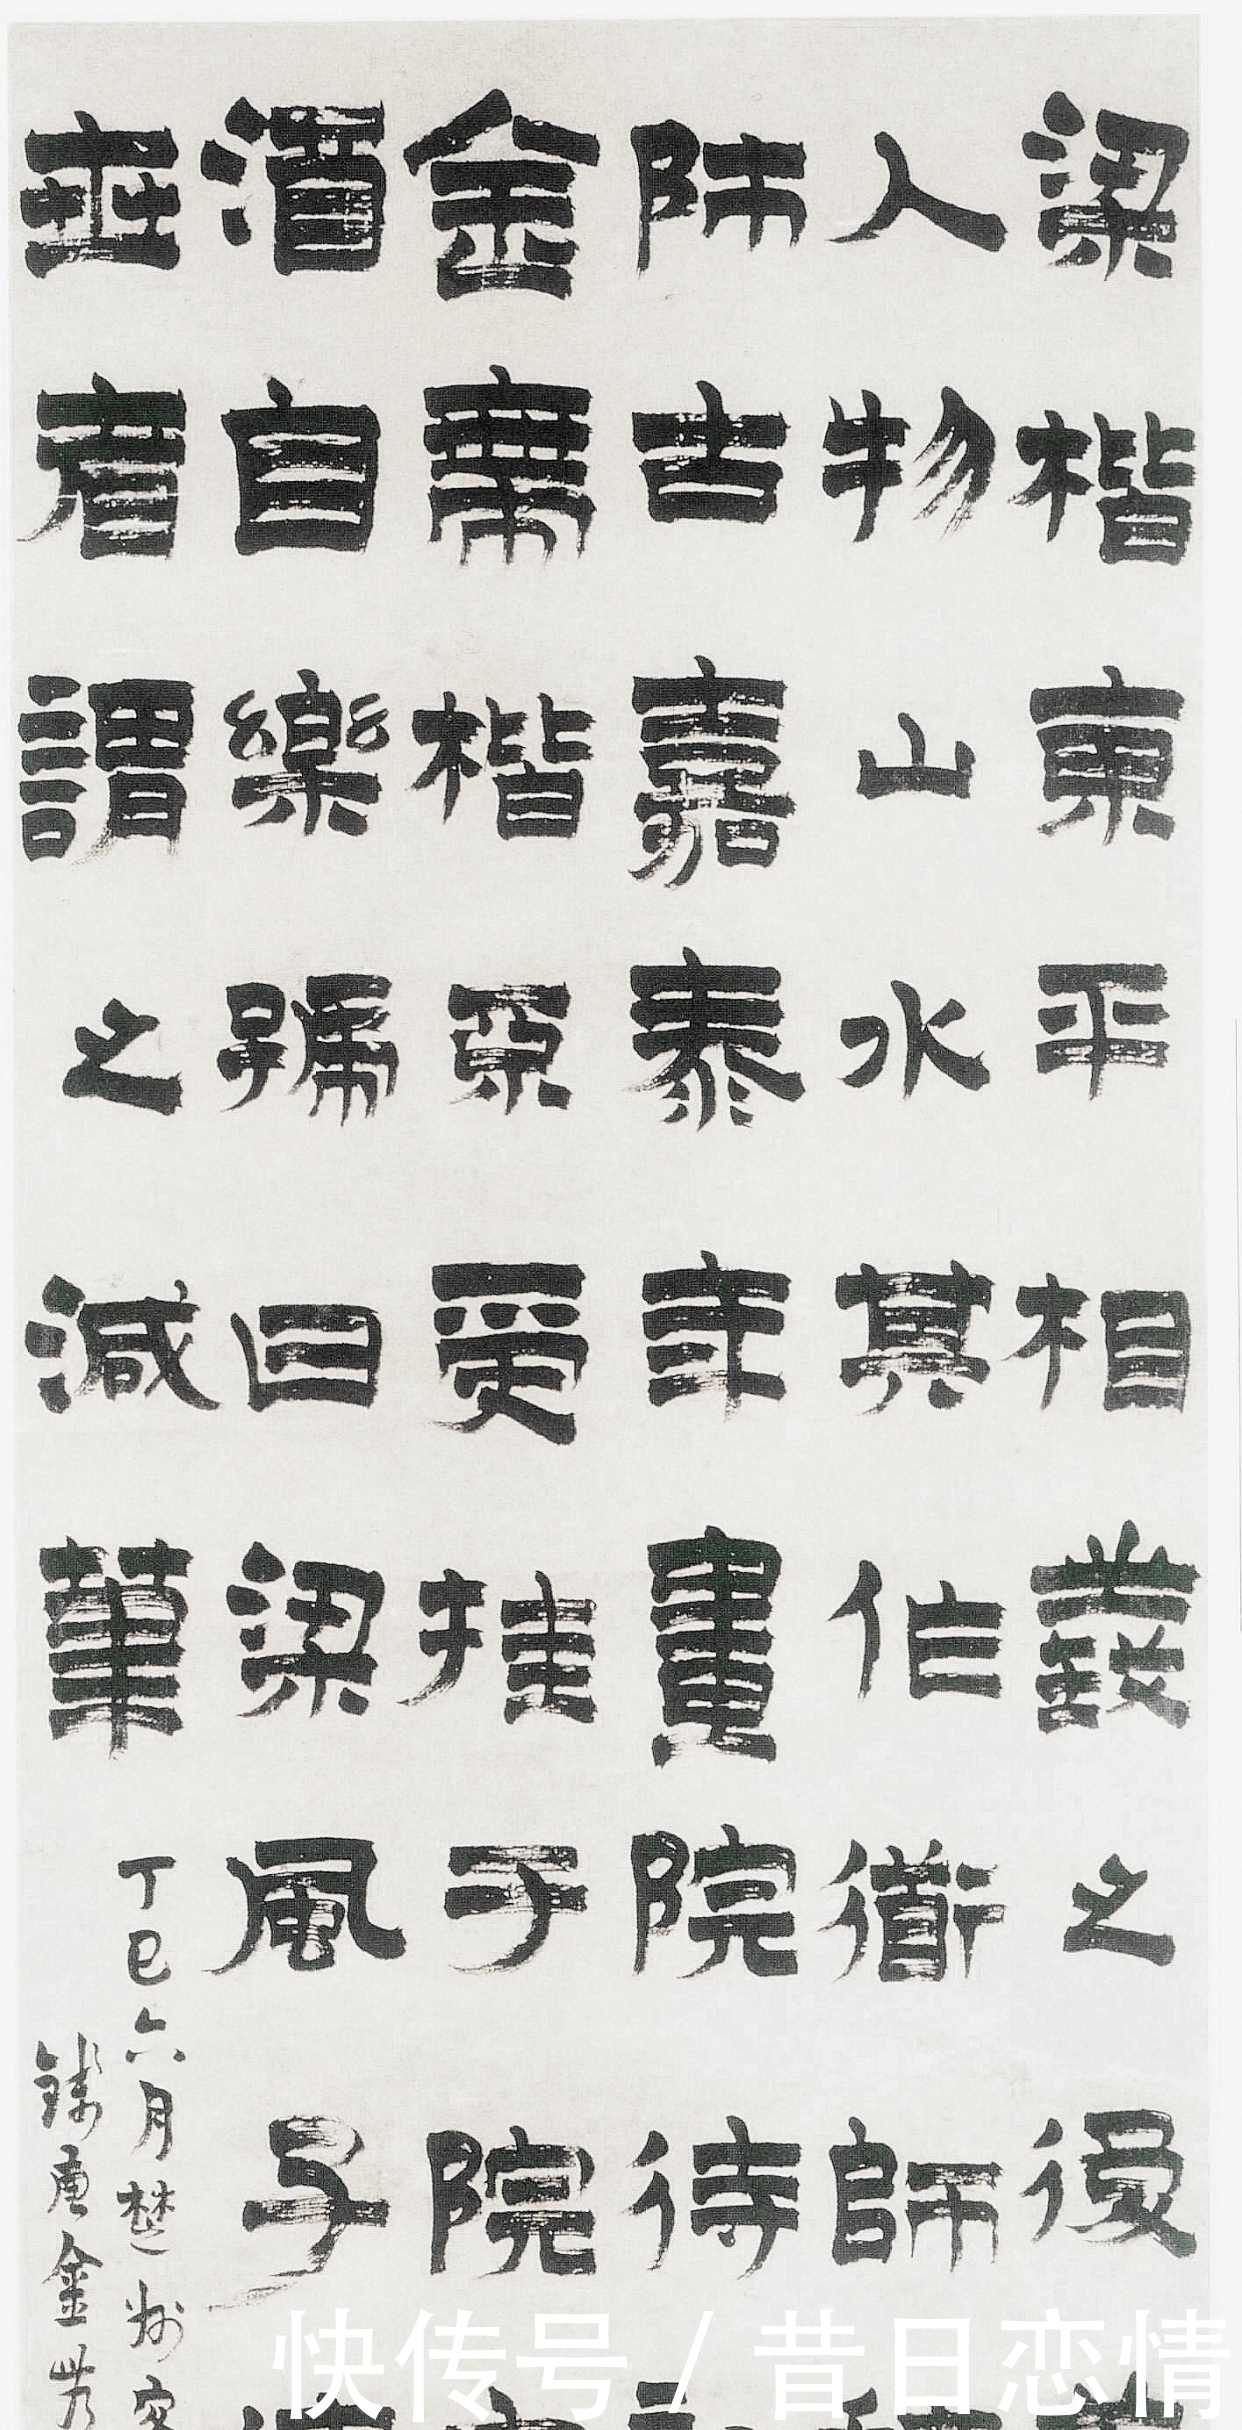 梁楷東平相義之後
人物山水其作衜師
師古嘉泰年畫院待
金帶楷亟受挂于院
酒自樂號曰梁風子
世者謂之減筆
丁巳六月楚州客
錢唐金農
快传号/昔日恋情